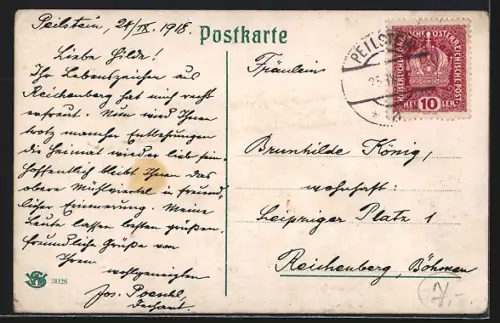 Peilstein, 24/IX. 1918.
Liebe Hilde!
Ihr Lebenszeichen aus
Reichenberg hat mich recht
erfreut. Nun wird Ihnen
trotz mancher Entbehrungen
die Heimat wieder lieb sein.
Hoffentlich bleibt Ihnen das
obere Mühlviertel in freund-
licher Erinnerung. Meine
Leute lassen bestens grüßen.
Freundliche Grüße von
Ihrem
wohlgeneigten
Jos.
Dechant.
13126
Postkarte
Fräulein
Brunhilde König,
wohnhaft:
Leipziger Platz 1
Reichenberg, Böhmen
PEILSTEIN
KAISERLICHE KÖNIGLICHE ÖSTERREICHISCHE POST
10
HELLER
7,-